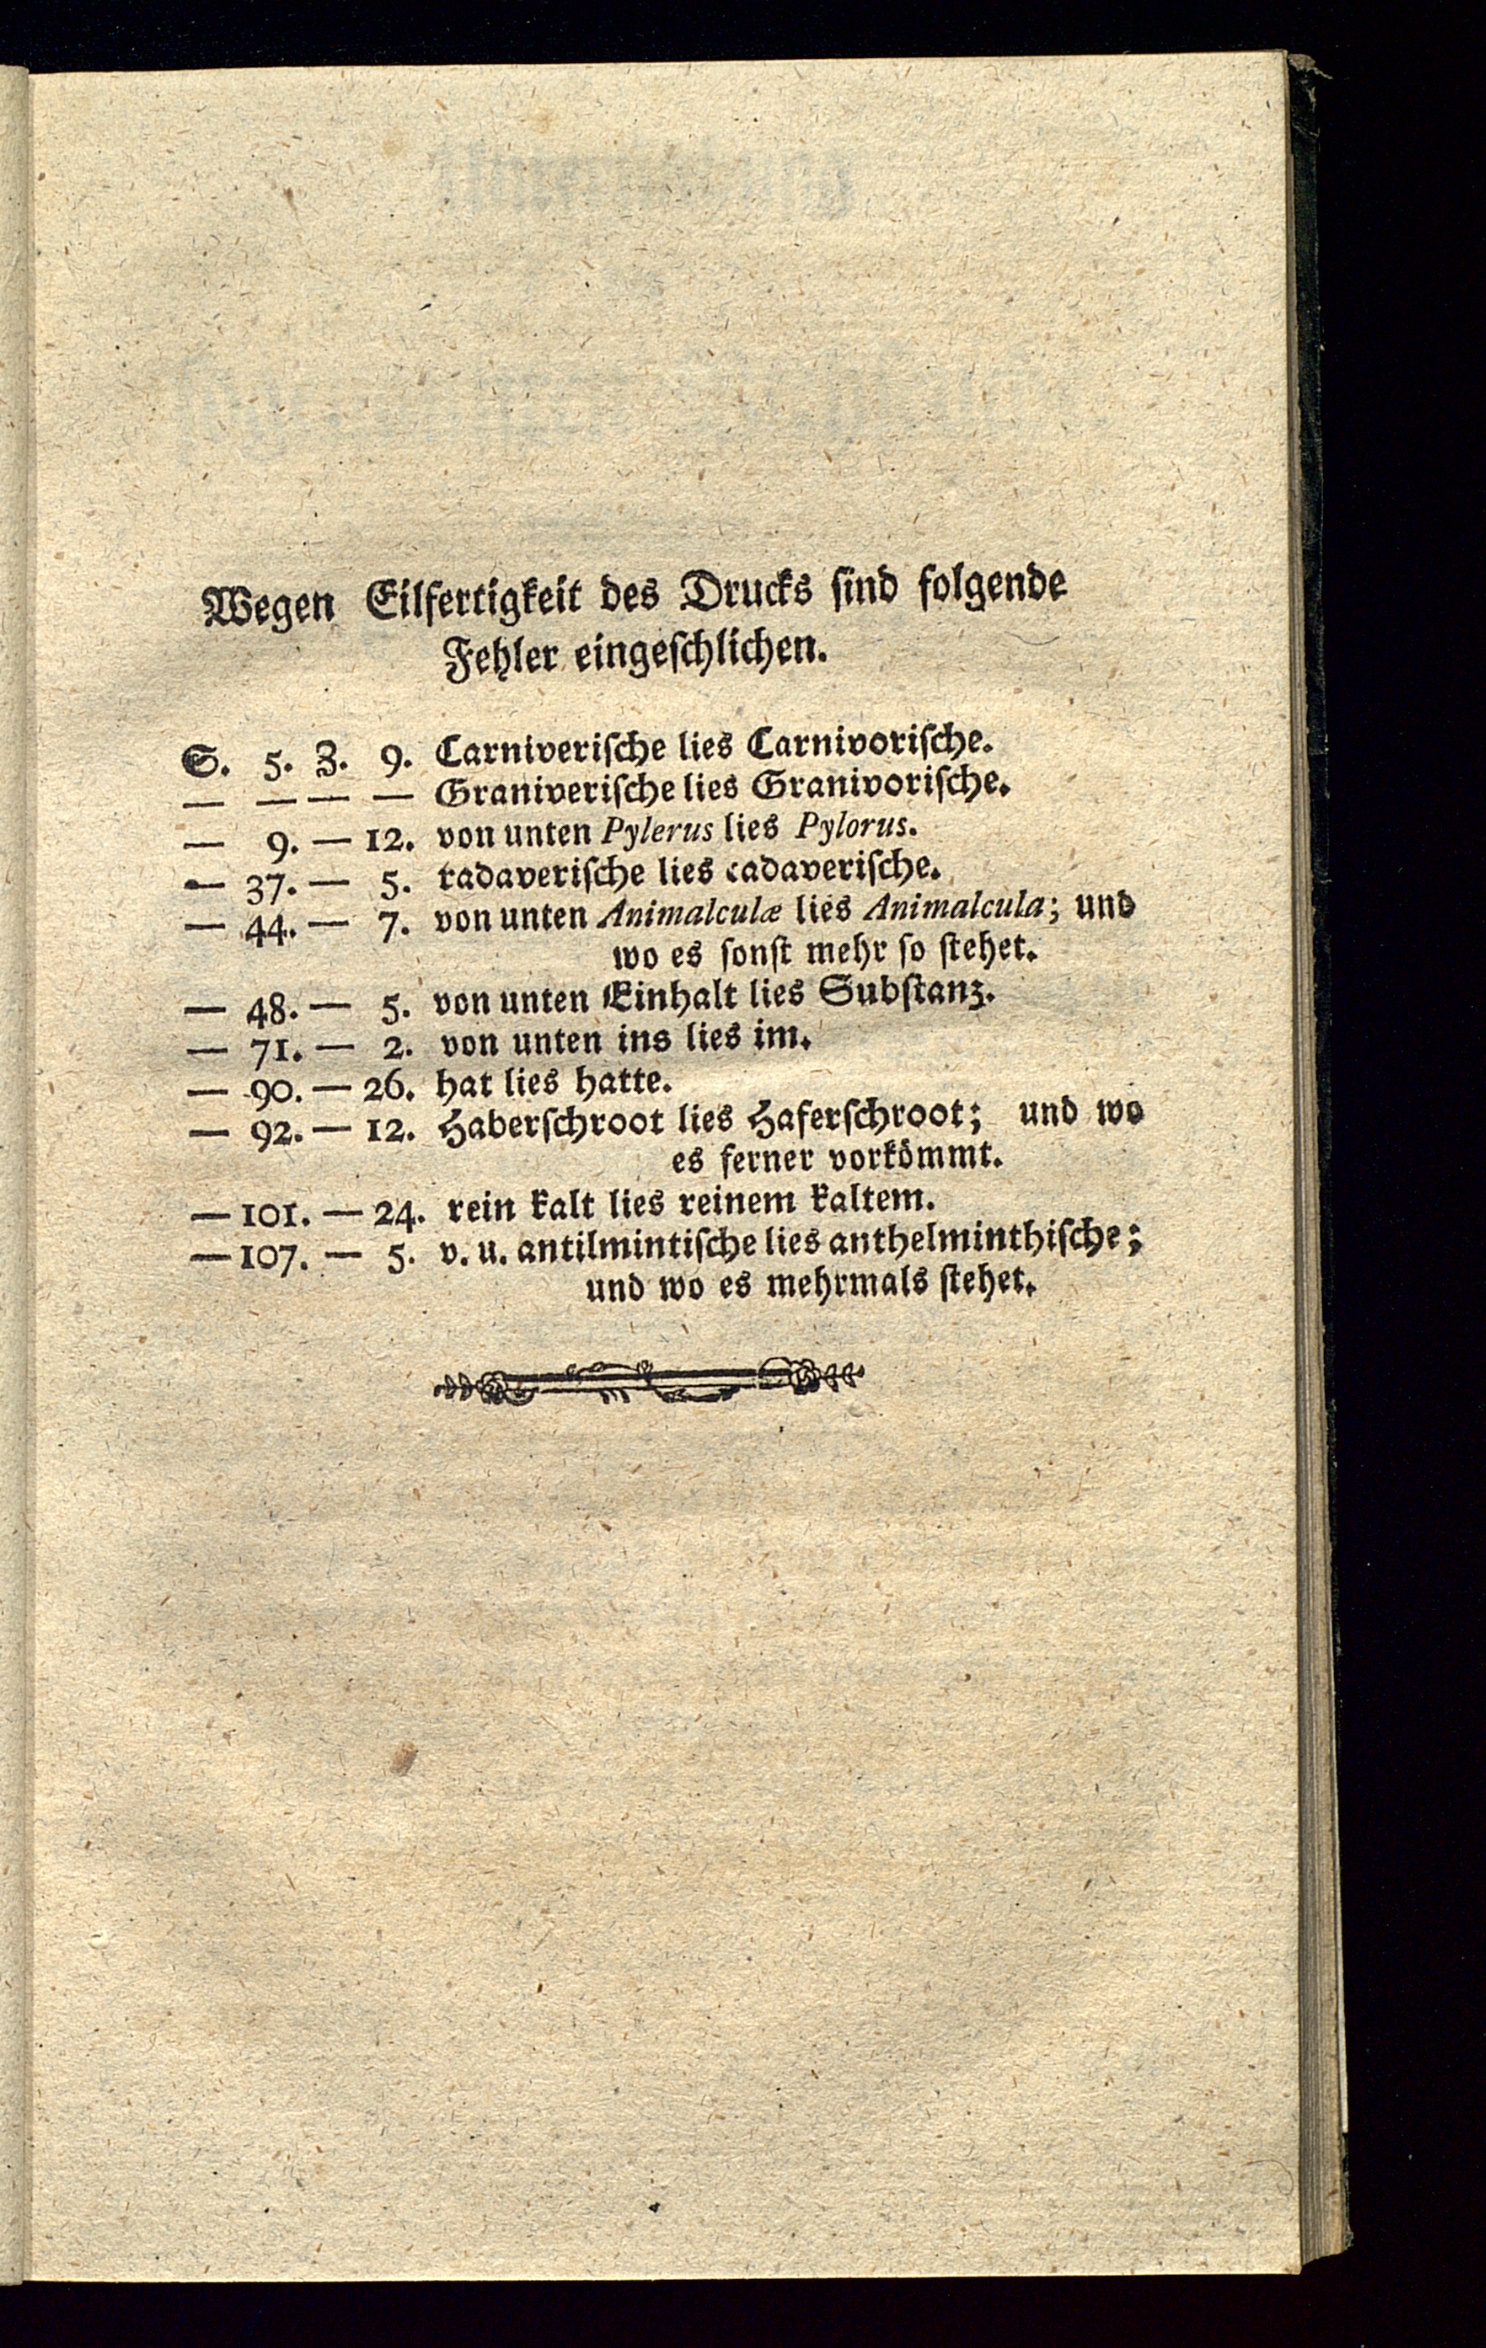 Wegen Eilfertigkeit des Drucks ſind folgende
Fehler eingeſchlichen.
S. 5. Z. 9. Carniveriſche lies Carnivoriſche.
— — — — Graniveriſche lies Granivoriſche.
— 9. — 12. von unten Pylerus lies Pylorus.
— 37. — 5. tadaveriſche lies cadaveriſche.
— 44. — 7. von unten Animalculæ lies Animalcula; und
wo es ſonſt mehr ſo ſtehet.
— 48. — 5. von unten Einhalt lies Subſtanz.
— 71. — 2. von unten ins lies im.
— 90. — 26. hat lies hatte.
— 92. — 12. Haberſchroot lies Haferſchroot; und wo
es ferner vorkömmt.
— 101. — 24. rein kalt lies reinem kaltem.
— 107. — 5. v. u. antilmintiſche lies anthelminthiſche;
und wo es mehrmals ſtehet.